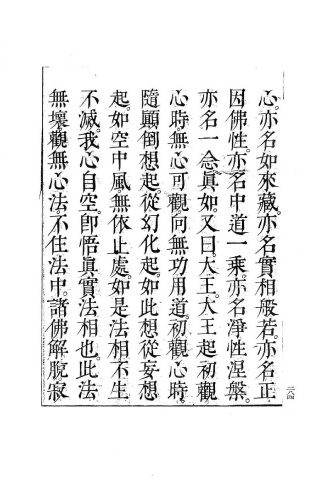 心。亦名如來藏。亦名實相般若。亦名正
因佛性。亦名中道一乘。亦名淨性涅槃。
亦名一念眞如。又曰。大王。大王起初觀
心時。無心可觀。向無功用道。初觀心時。
隨顚倒想起。從幻化起。如此想從妄想
起。如空中風。無依止處。如是法相。不生
不滅。我心自空。卽悟眞實法相也。此法
無壞。觀無心法。不住法中。諸佛解脫寂
二八四